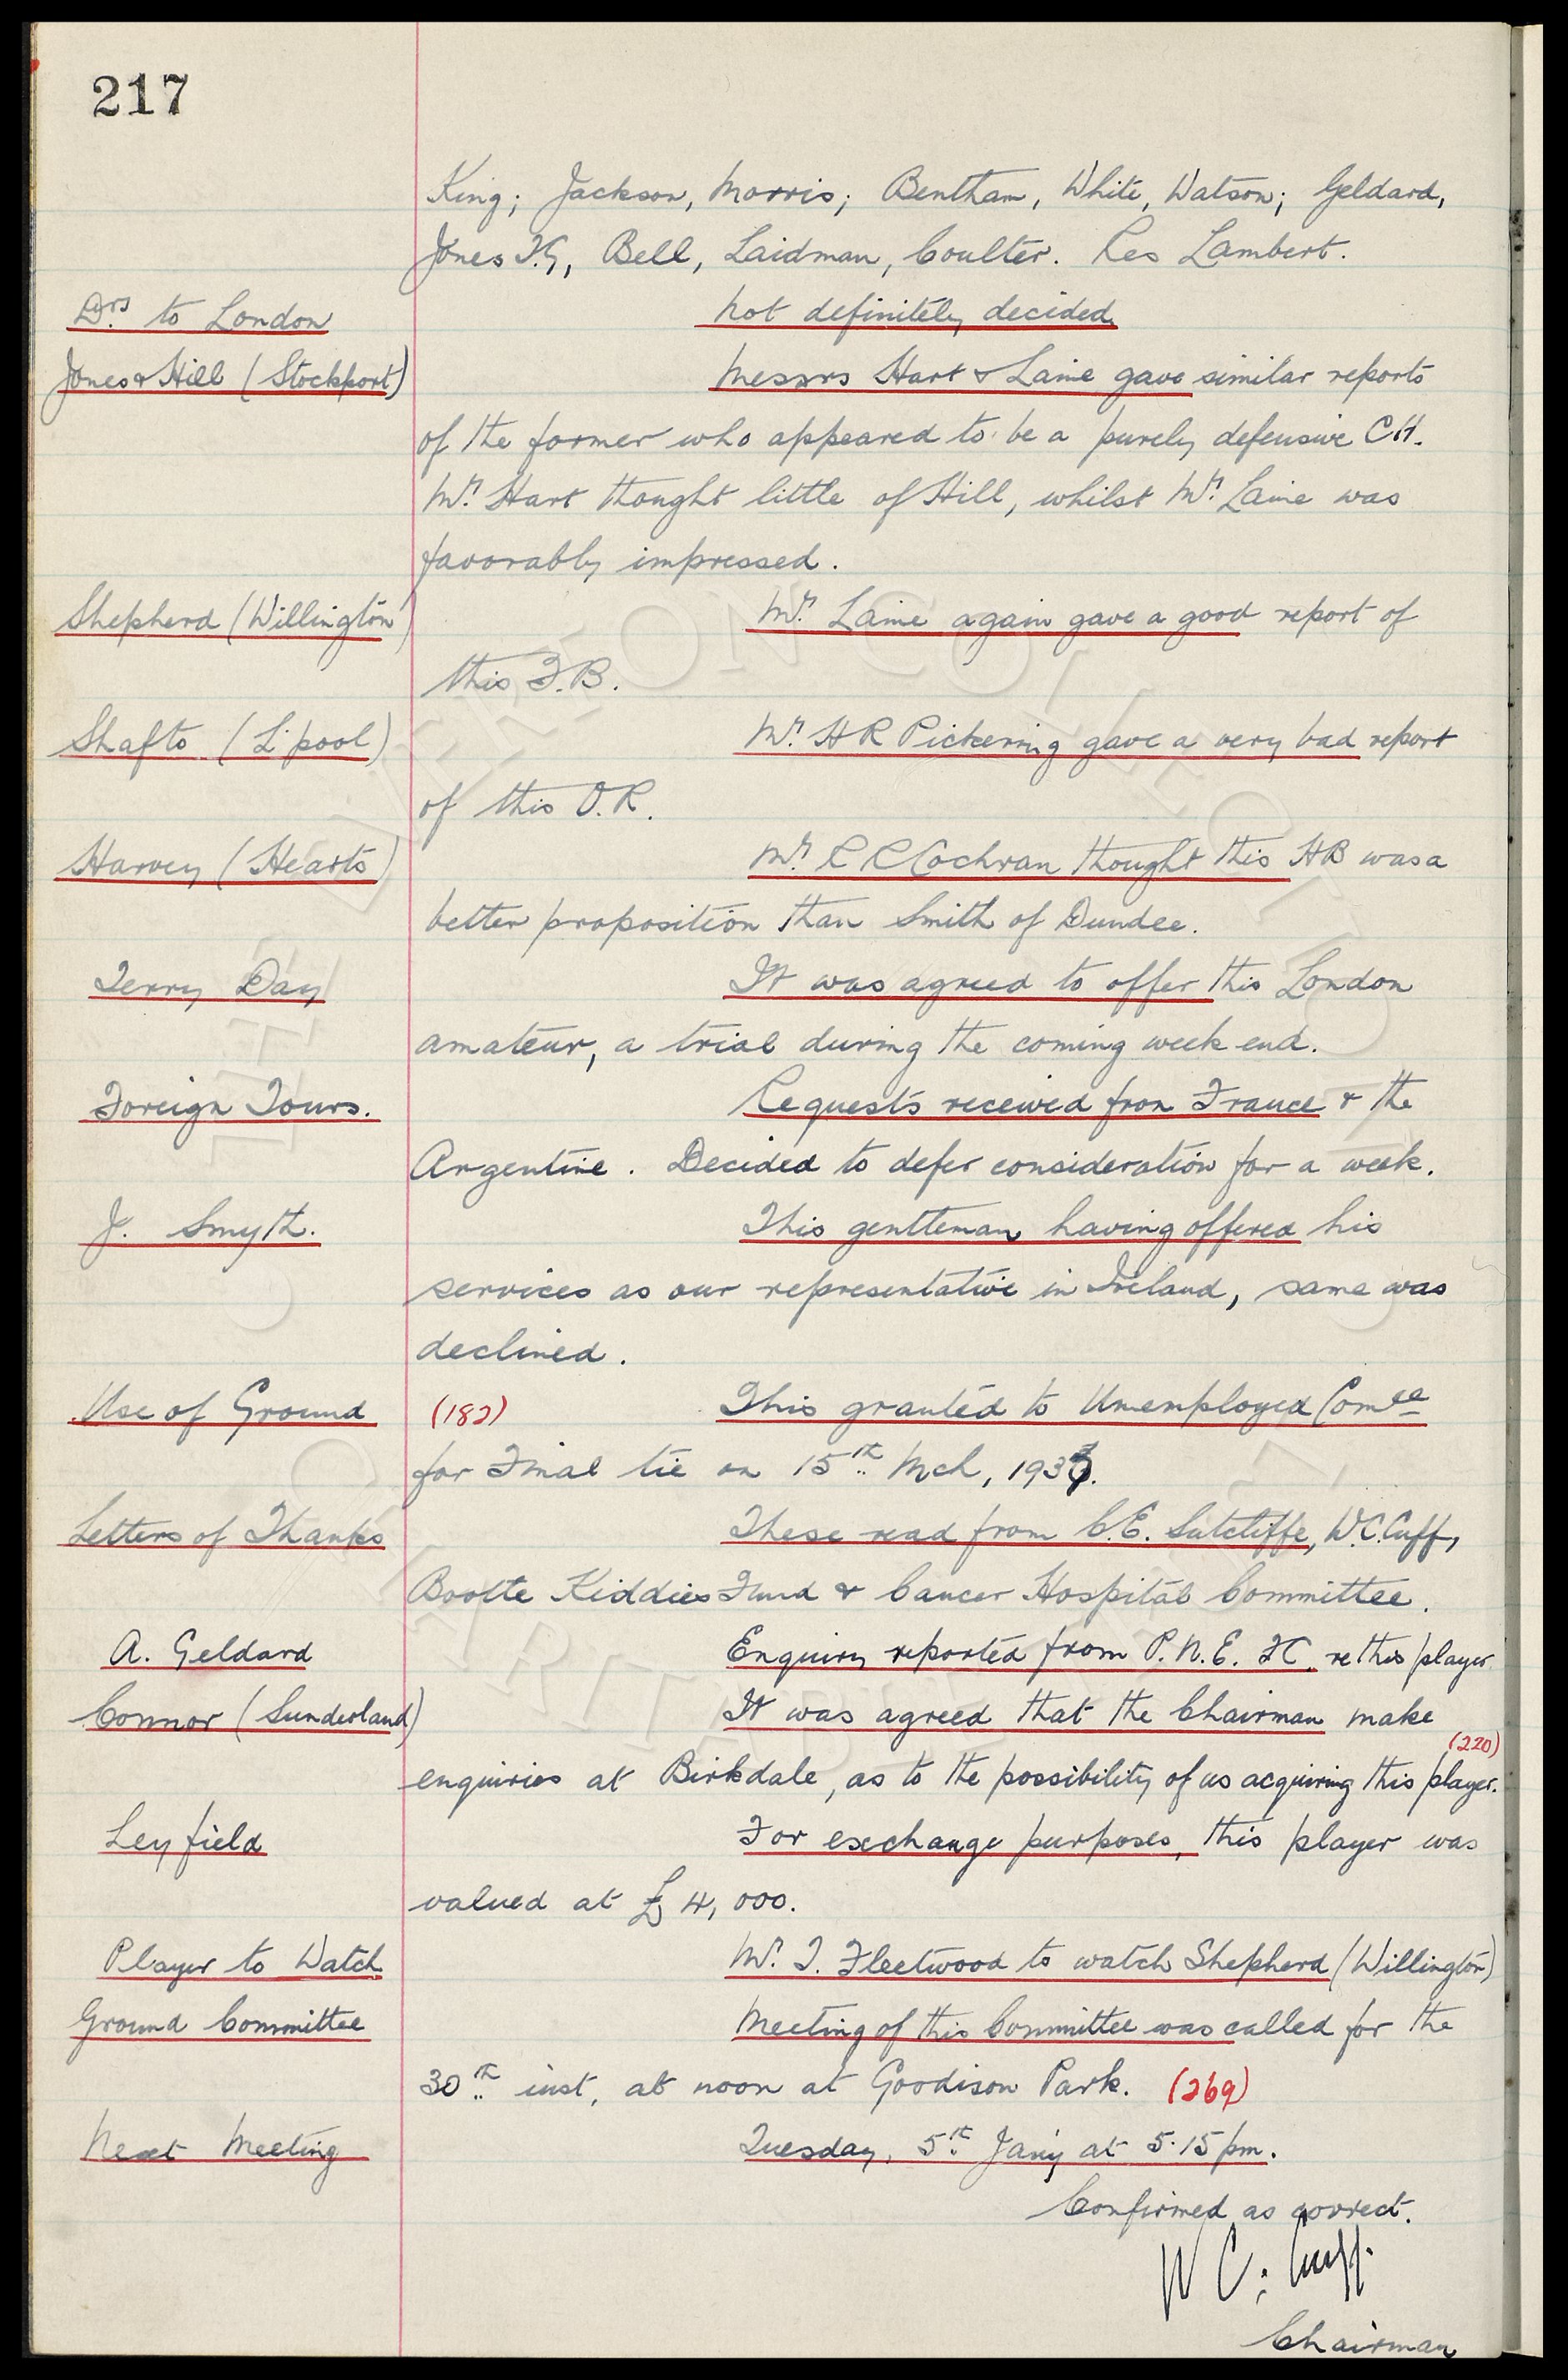 217
King; Jackson, Morris; Bentham, White, Watson; Geldard,
Jones T.G, Bell, Laidman, Coulter. Res Lambert.
Drs to London Not definitely decided
Jones & Hill (Stockport) Messrs Hart & Laine gave similar reports
of the former who appeared to be a purely defensive CH.
Mr. Hart thought little of Hill, whilst Mr. Laine was
favorably impressed.
Shepherd (Willington) Mr. Laine again gave a good report of
this F.B.
Shafto (L'pool) Mr. H R Pickering gave a very bad report
of this O.R.
Harvey (Hearts) Mr. R C Cochran thought this HB was a
better proposition than Smith of Dundee.
Terry Day It was agreed to offer this London
amateur, a trial during the coming week end.
Foreign Tours. Requests received from France & the
Argentine. Decided to defer consideration for a week.
J. Smyth. This gentleman having offered his
services as our representative in Ireland, same was
declined.
Use of Ground (182) This granted to Unemployed Comee
for Final tie on 15th Mch, 1937.
Letters of Thanks These read from C.E. Sutcliffe, W.C. Cuff,
Bootle Kiddies Fund & Cancer Hospital Committee.
A. Geldard Enquiry reported from P.N.E. FC. re this player
Connor (Sunderland) It was agreed that the Chairman make
(220)
enquiries at Birkdale, as to the possibility of us acquiring this player.
Leyfield For exchange purposes, this player was
valued at £4,000.
Player to Watch Mr. T. Fleetwood to watch Shepherd (Willington)
Ground Committee Meeting of this Committee was called for the
30th inst, at noon at Goodison Park. (269)
Next Meeting Tuesday, 5th Jany at 5.15pm.
Confirmed as correct.
W C. Cuff.
Chairman